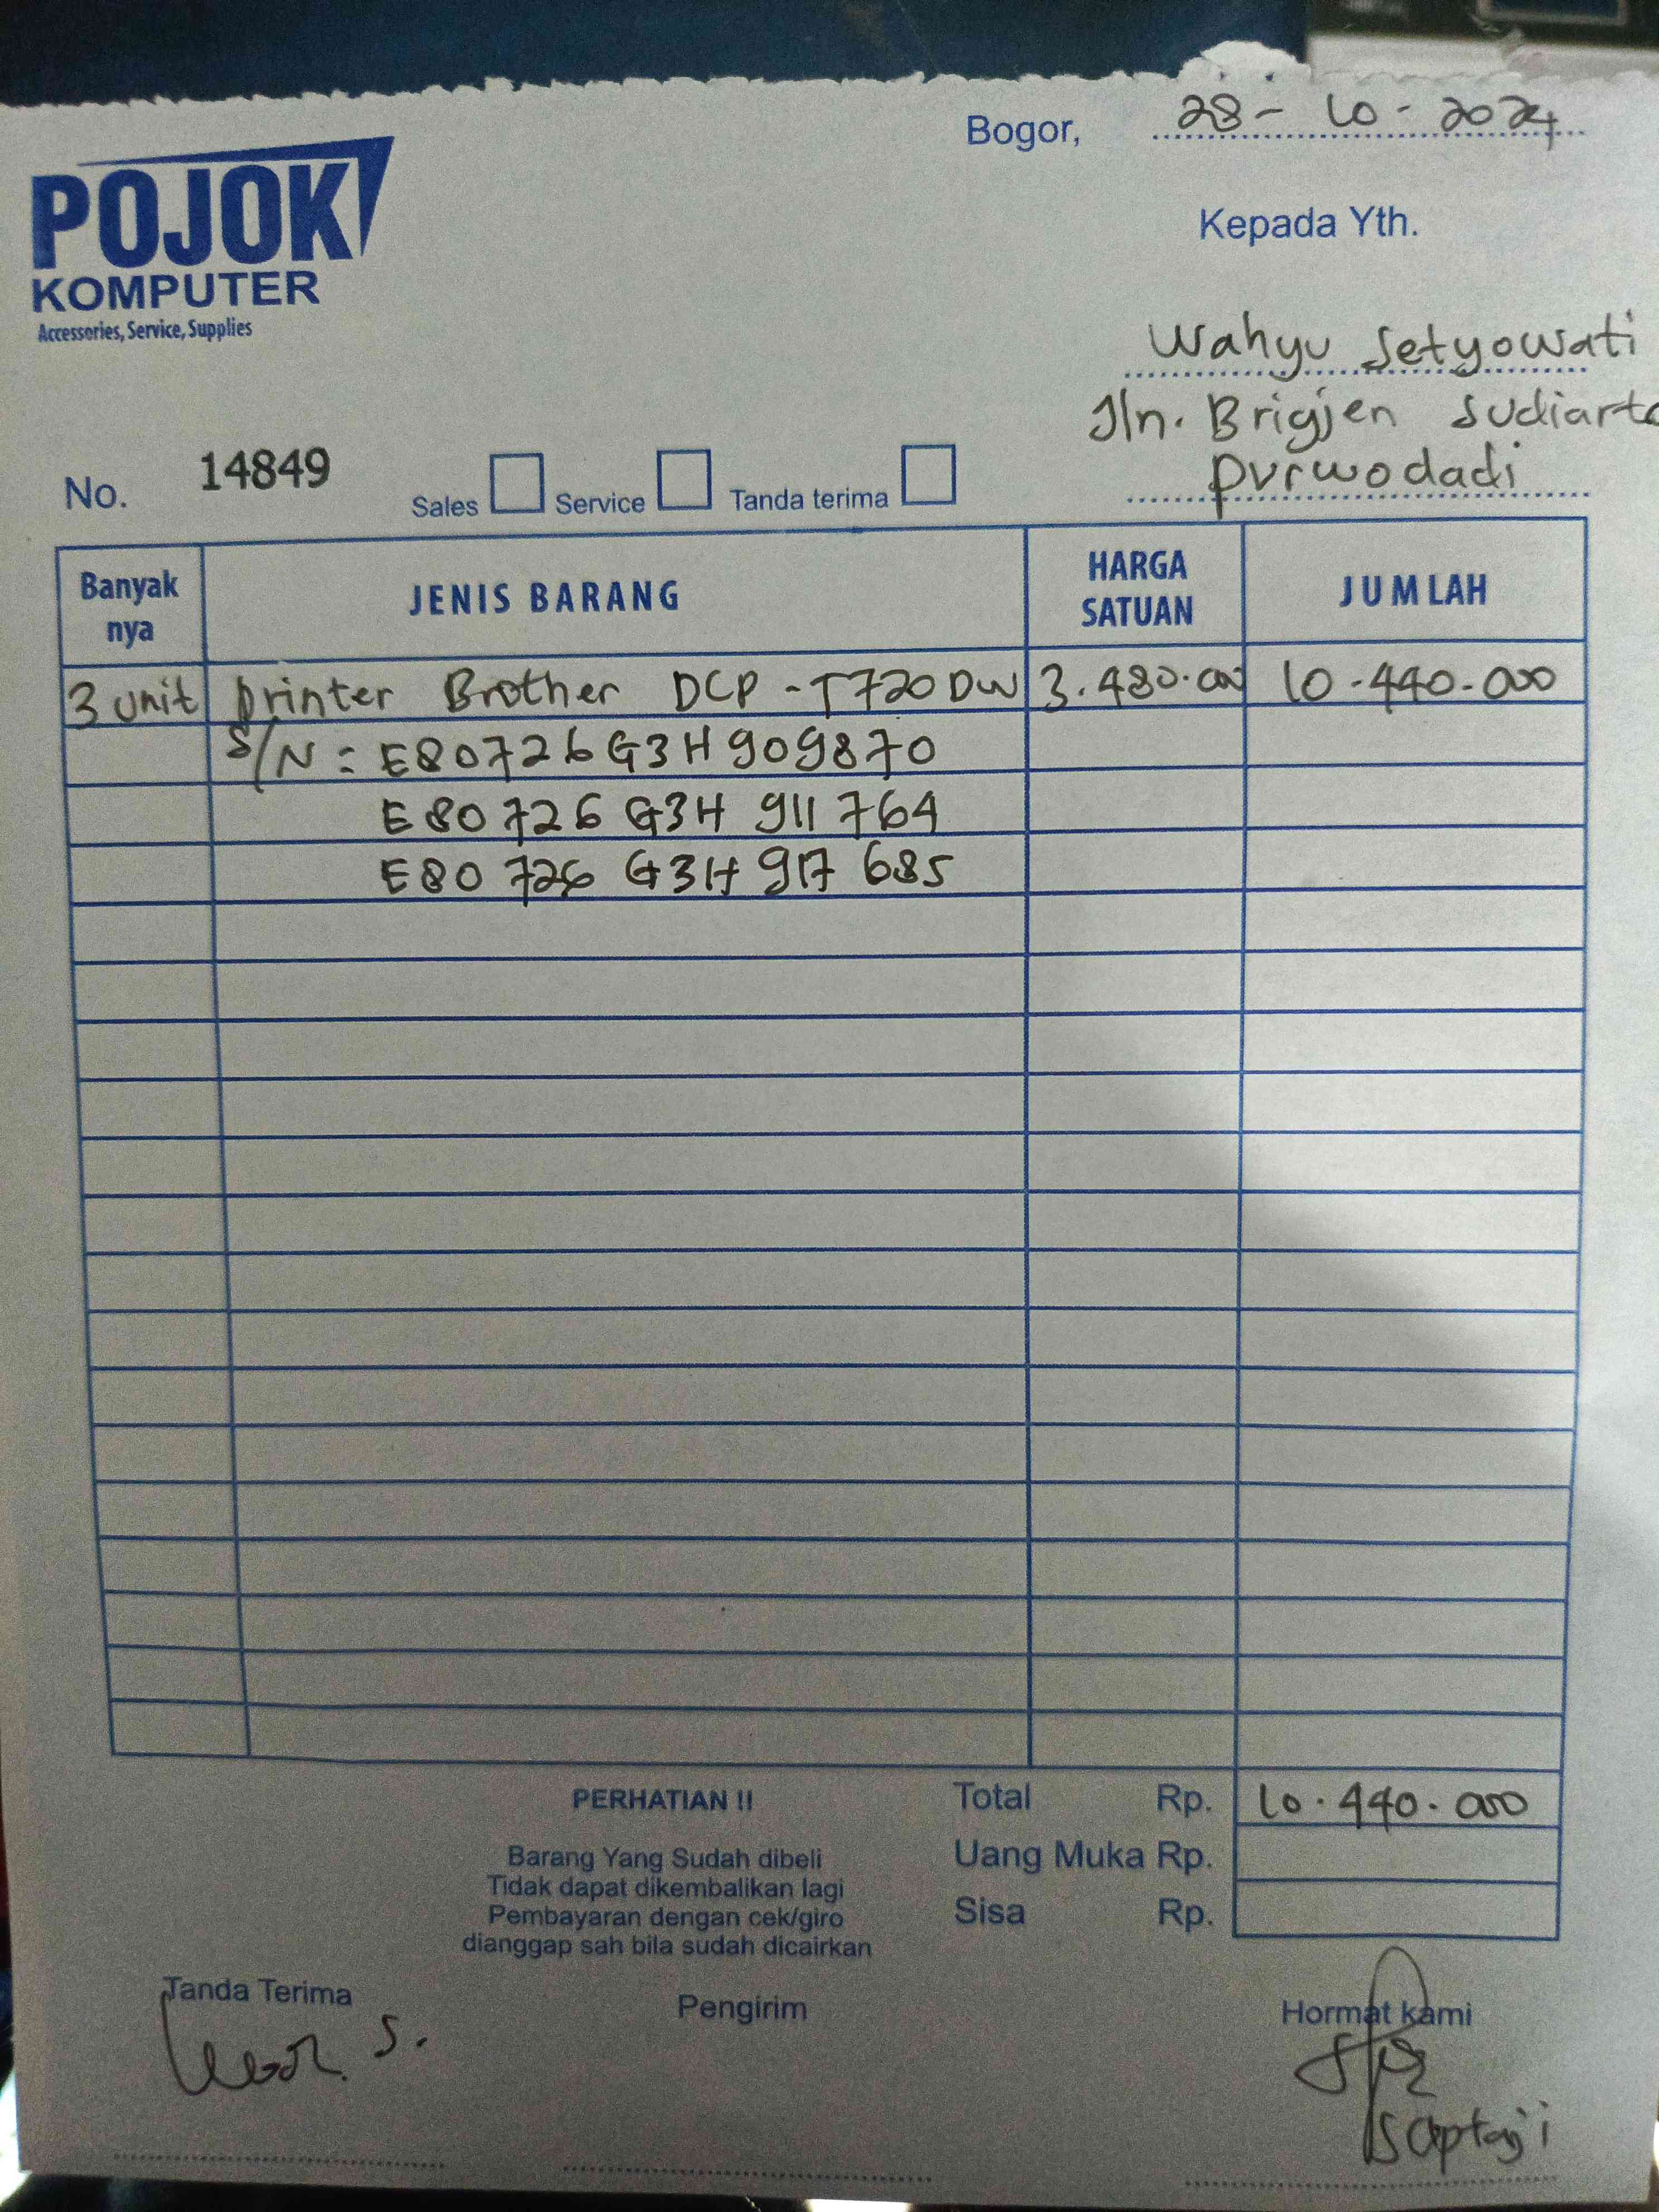 Bogor, 28-10-2024
POJOK
KOMPUTER
Accessories, Service, Supplies
Kepada Yth.
Wahyu Setyowati
Jln. Brigjen Sudiarto
Purwodadi
No. 14849 Sales Service Tanda terima
Banyak nya JENIS BARANG HARGA SATUAN JUMLAH
3 unit Printer Brother DCP-T720DW 3.480.000 10.440.000
S/N : E80726G3H909870
E80726G3H911764
E80726G3H917685
PERHATIAN !! Total Rp. 10.440.000
Barang Yang Sudah dibeli Uang Muka Rp.
Tidak dapat dikembalikan lagi
Pembayaran dengan cek/giro Sisa Rp.
dianggap sah bila sudah dicairkan
Tanda Terima Pengirim Hormat kami
S.
Saptaji